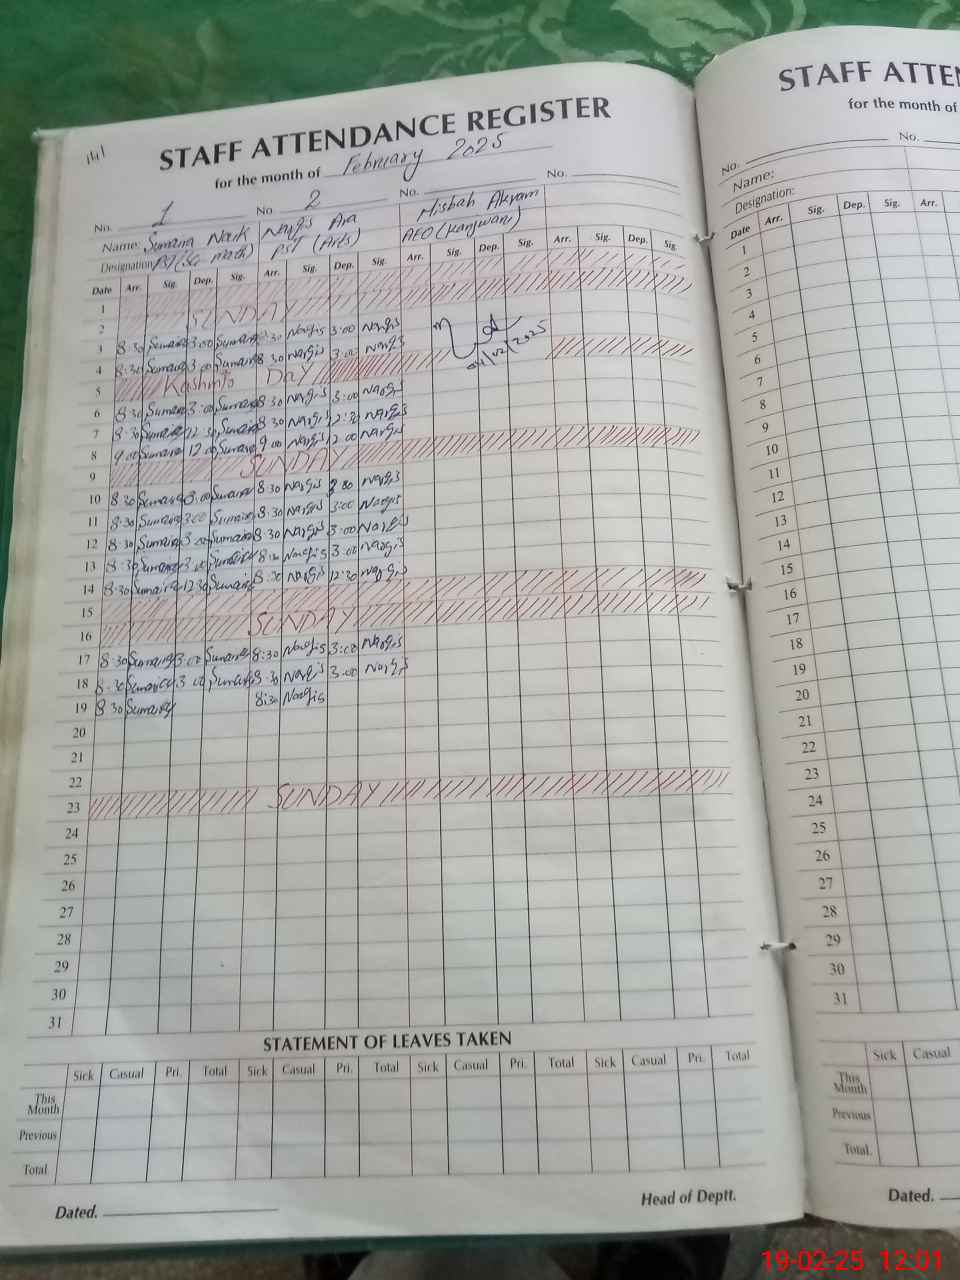 141
STAFF ATTENDANCE REGISTER
for the month of February 2025
No. 1 No. 2 No. No.
Name: Sumaira Nargis Ara Misbah Akram
Designation: PST (Sc. math) PST (Arts) AEO (Kanjwani)
Date Arr. Sig. Dep. Sig. Arr. Sig. Dep. Sig. Arr. Sig. Dep. Sig. Arr. Sig. Dep. Sig
1
2 SUNDAY
3 8:30 Sumaira 3:00 Sumaira 8:30 Nargis 3:00 Nargis
4 8:30 Sumaira 3:00 Sumaira 8:30 Nargis 3:00 Nargis 04/02/2025
5 Kashmir DAY
6 8:30 Sumaira 3:00 Sumaira 8:30 Nargis 3:00 Nargis
7 8:30 Sumaira 12:30 Sumaira 8:30 Nargis 12:30 Nargis
8 9:00 Sumaira 12:00 Sumaira 9:00 Nargis 12:00 Nargis
9 SUNDAY
10 8:30 Sumaira 3:00 Sumaira 8:30 Nargis Nargis
11 8:30 Sumaira 3:00 Sumaira 8:30 Nargis 3:00 Nargis
12 8:30 Sumaira 3:00 Sumaira 8:30 Nargis 3:00 Nargis
13 8:30 Sumaira 3:00 Sumaira 8:30 Nargis 3:00 Nargis
14 8:30 Sumaira 12:30 Sumaira 8:30 Nargis 12:30 Nargis
15
16 SUNDAY
17 8:30 Sumaira 3:00 Sumaira 8:30 Nargis 3:00 Nargis
18 8:30 Sumaira 3:00 Sumaira 8:30 Nargis 3:00 Nargis
19 8:30 Sumaira 8:30 Nargis
20
21
22
23 SUNDAY
24
25
26
27
28
29
30
31
STATEMENT OF LEAVES TAKEN
Sick Casual Pri. Total Sick Casual Pri. Total Sick Casual Pri. Total Sick Casual Pri. Total
This Month
Previous
Total
Dated. Head of Deptt.
STAFF ATTEN
for the month of
No. No.
Name:
Designation:
Date Arr. Sig. Dep. Sig. Arr.
1
2
3
4
5
6
7
8
9
10
11
12
13
14
15
16
17
18
19
20
21
22
23
24
25
26
27
28
29
30
31
Sick Casual
This Month
Previous
Total.
Dated.
19-02-25 12:01